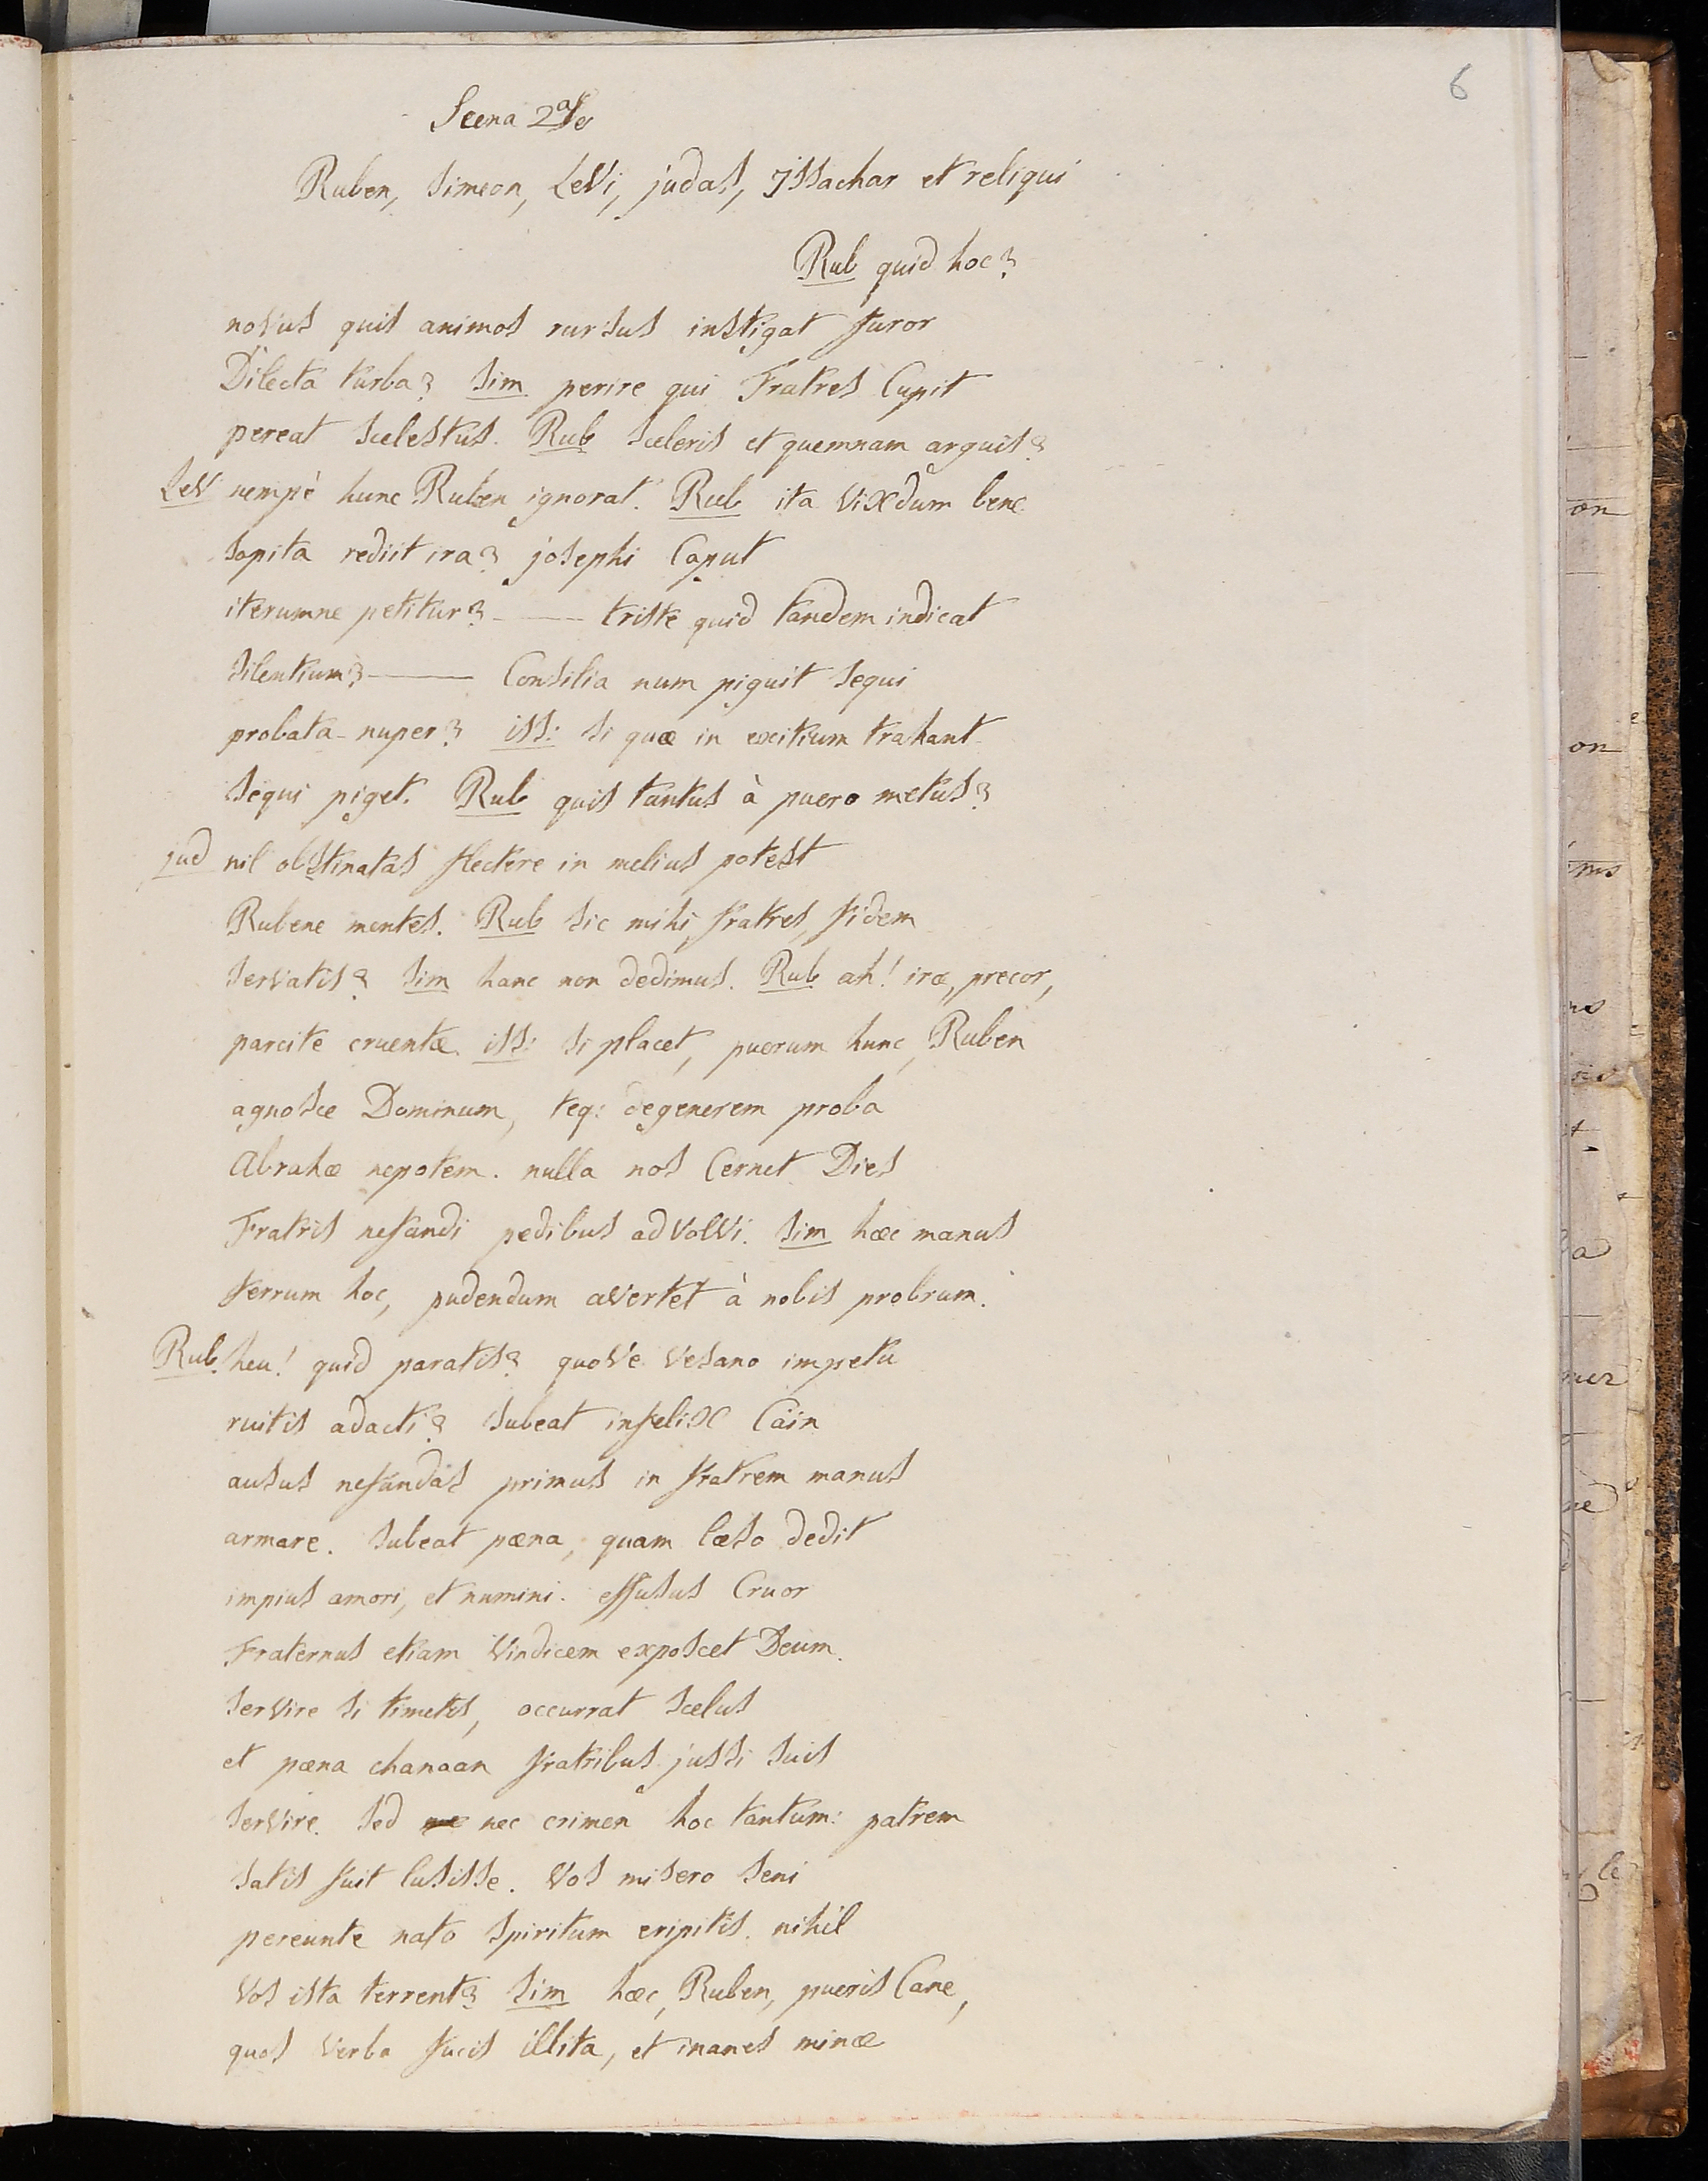 6
Scena 2da
Ruben, Simeon, Levi, judas, Issachar et reliqui
Rub quid hoc?
novus quis animos rursus instigat furor
Dilecta turba? Sim perire qui Fratres Cupit
pereat scelestus. Rub sceleris et quemnam arguis?
Lev nempè hunc Ruben ignorat. Rub ita vixdum bene
sopita rediit ira? josephi Caput
iterumne petitur? - —— triste quid tandem indicat
silentium? —— Consilia num piguit sequi
probata nuper? iss: si quæ in exitium trahant
sequi piget. Rub quis tantus à puero metus?
jud nil obstinatas flectere in melius potest
Rubene mentes. Rub sic mihi, fratres, fidem
servatis? Sim hanc non dedimus. Rub ah! iræ, precor,
parcite cruentæ. iss: si placet, puerum hunc, Ruben
agnosce Dominum, teq: degenerem proba
Abrahæ nepotem. nulla nos Cernet Dies
Fratris nefandi pedibus advolvi. Sim hæc manus
ferrum hoc, pudendum avertet à nobis probrum.
Rub. heu! quid paratis? quove vesano impetu
ruitis adacti? subeat infelix Cain
ausus nefandas primus in fratrem manus
armare. subeat pæna, quam læso dedit
impius amori, et numini. effusus Cruor
Fraternus etiam vindicem exposcet Deum.
servire si timetis, occurrat scelus
et pæna chanaan fratribus jussi suis
servire. sed nec crimen hoc tantum: patrem
satis fuit lusisse. Vos misero seni
pereunte nato spiritum eripitis. nihil
Vos ista terrent? Sim hæc, Ruben, pueris Cane,
quos verba fucis illita, et inanes minæ